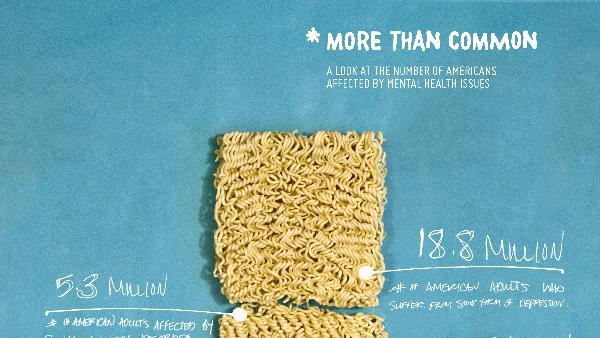 * MORE THAN COMMON
A LOOK AT THE NUMBER OF AMERICANS
AFFECTED BY MENTAL HEALTH ISSUES
18.8 MILLION
# OF AMERICAN ADULTS WHO
SUFFER FROM SOME FORM OF DEPRESSION.
5.3 MILLION
# OF AMERICAN ADULTS AFFECTED BY